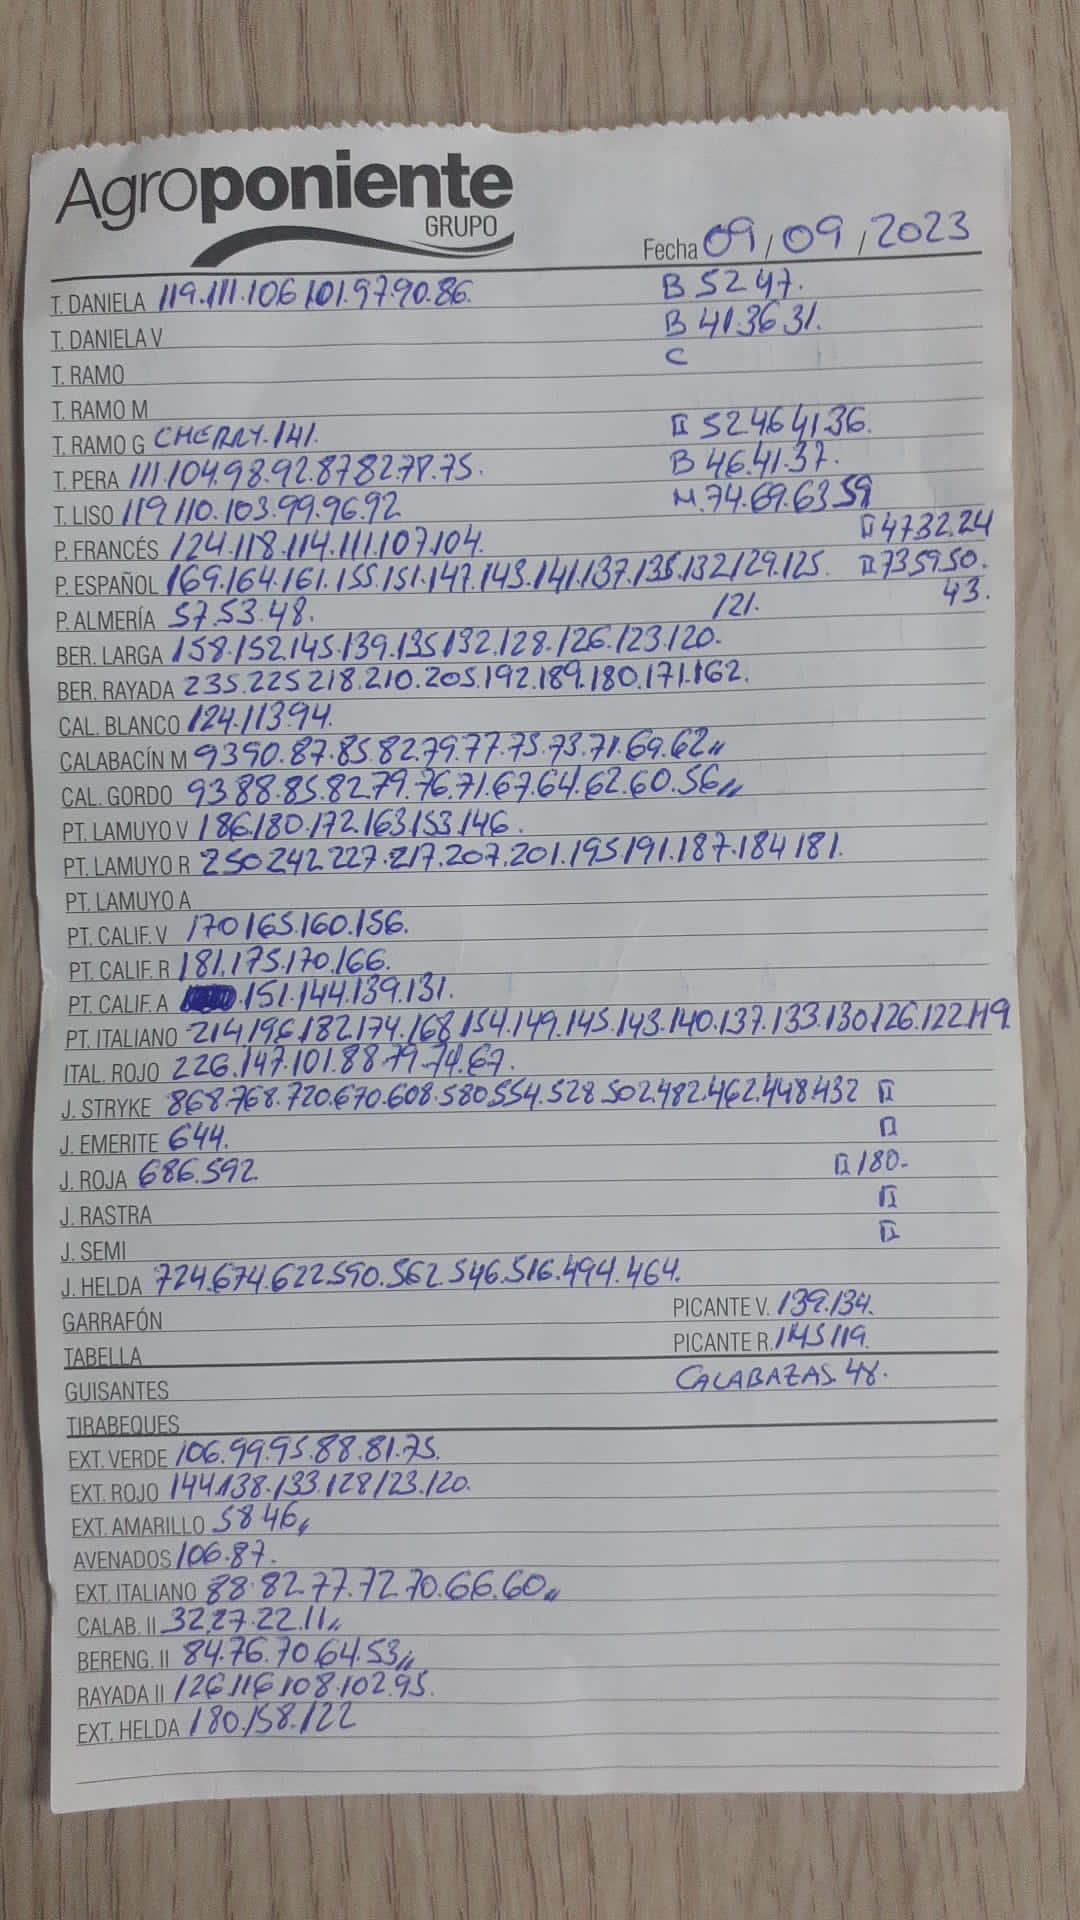 Agroponiente
GRUPO
Fecha 09/09/2023
T. DANIELA 119.111.106.101.97.90.86. B 52 47.
T. DANIELA V B 41.36 31.
T. RAMO C
T. RAMO M
T. RAMO G CHERRY.141. II 52.46 41 36.
T. PERA 111.104.98.92.87 82.78.75. B 46.41.37.
T. LISO 119 110.103.99.96.92 M.74.69.63 59
P. FRANCÉS 124.118.114.111.107.104. II 47 32.24
P. ESPAÑOL 169.164.161.155.151.147.143.141.137.135.132.129.125. II 73 59 50.
P. ALMERÍA 57.53.48. 121. 43.
BER. LARGA 158.152.145.139.135.132.128.126.123.120.
BER. RAYADA 235.225 218.210.205.192.189.180.171.162.
CAL. BLANCO 124.113.94.
CALABACÍN M 93 90.87.85.82.79.77.75.73.71.69.62
CAL. GORDO 93.88.85.82.79.76.71.67.64.62.60.56
PT. LAMUYO V 186.180.172.163.153.146.
PT. LAMUYO R 250 242 227.217.207.201.195 191.187.184 181.
PT. LAMUYO A
PT. CALIF. V 170 165.160.156.
PT. CALIF. R 181.175.170.166.
PT. CALIF. A .151.144.139.131.
PT. ITALIANO 214 196.182.174.168.154.149.145.143.140.137.133.130.126.122.119.
ITAL. ROJO 226.147.101.88.79.74.67.
J. STRYKE 868.768.720.670.608.580.554.528.502.482.462.448.432 II
J. EMERITE 644. II
J. ROJA 686.592. II 180.
J. RASTRA II
J. SEMI II
J. HELDA 724.674.622.590.562.546.516.494.464.
GARRAFÓN PICANTE V. 139.134.
TABELLA PICANTE R. 145 119.
GUISANTES CALABAZAS. 48.
TIRABEQUES
EXT. VERDE 106.99.95.88.81.75.
EXT. ROJO 144.138.133.128.123.120.
EXT. AMARILLO 58 46
AVENADOS 106.87.
EXT. ITALIANO 88.82.77.72.70.66.60
CALAB. II 32.27.22.11
BERENG. II 84.76.70.64.53
RAYADA II 126.116.108.102.95.
EXT. HELDA 180.158.122